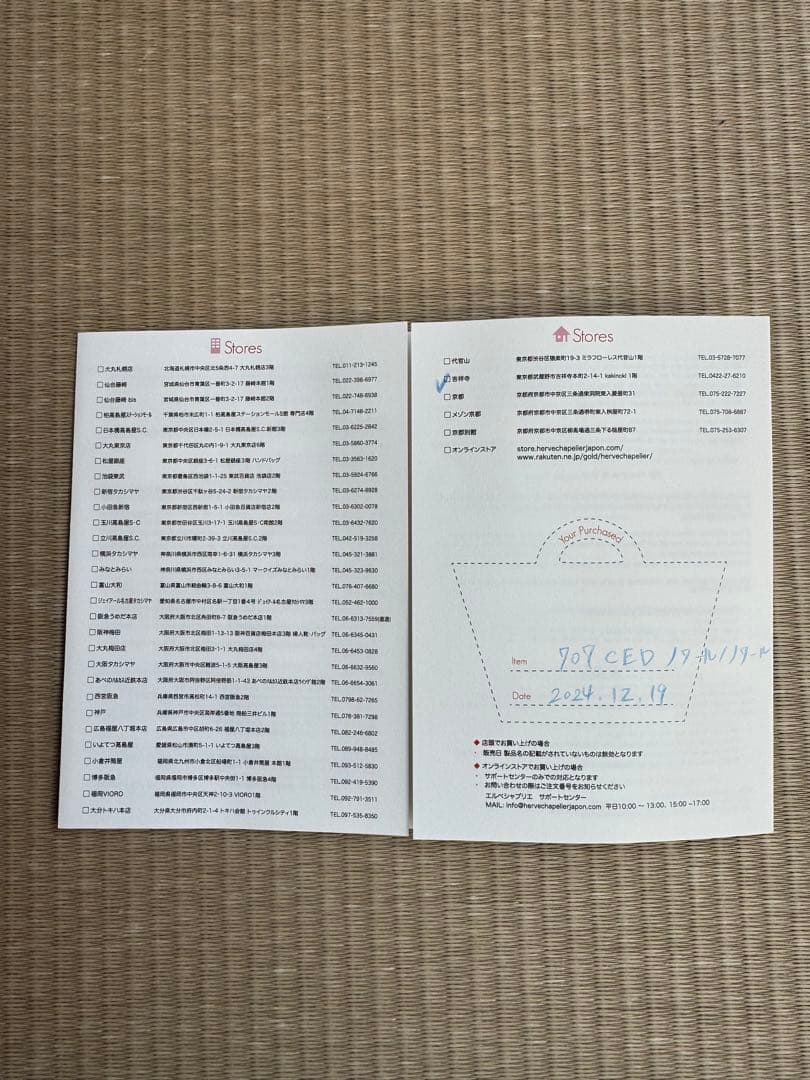 Stores
大丸札幌店 北海道札幌市中央区北5条西4-7 大丸札幌店3階 TEL.011-213-1245
仙台藤崎 宮城県仙台市青葉区一番町3-2-17 藤崎本館1階 TEL.022-398-6977
仙台藤崎 bis 宮城県仙台市青葉区一番町3-2-17 藤崎本館2階 TEL.022-748-6938
柏高島屋ステーションモール 千葉県柏市末広町1-1 柏高島屋ステーションモールS館 専門店4階 TEL.04-7148-2211
日本橋高島屋S.C. 東京都中央区日本橋2-5-1 日本橋高島屋S.C.新館3階 TEL.03-6225-2642
大丸東京店 東京都千代田区丸の内1-9-1 大丸東京店6階 TEL.03-5860-3774
松屋銀座 東京都中央区銀座3-6-1 松屋銀座3階 ハンドバッグ TEL.03-3563-1620
池袋東武 東京都豊島区西池袋1-1-25 東武百貨店 池袋店2階 TEL.03-5924-6766
新宿タカシマヤ 東京都渋谷区千駄ヶ谷5-24-2 新宿タカシマヤ2階 TEL.03-6274-8928
小田急新宿 東京都新宿区西新宿1-5-1 小田急百貨店新宿店2階 TEL.03-6302-0078
玉川高島屋S・C 東京都世田谷区玉川3-17-1 玉川高島屋S・C南館2階 TEL.03-6432-7620
立川高島屋S.C. 東京都立川市曙町2-39-3 立川高島屋S.C.2階 TEL.042-519-3258
横浜タカシマヤ 神奈川県横浜市西区南幸1-6-31 横浜タカシマヤ3階 TEL.045-321-3881
みなとみらい 神奈川県横浜市西区みなとみらい3-5-1 マークイズみなとみらい1階 TEL.045-323-9630
富山大和 富山県富山市総曲輪3-8-6 富山大和1階 TEL.076-407-6680
ジェイアール名古屋タカシマヤ 愛知県名古屋市中村区名駅一丁目1番4号 ジェイアール名古屋タカシマヤ3階 TEL.052-462-1000
阪急うめだ本店 大阪府大阪市北区角田町8-7 阪急うめだ本店1階 TEL.06-6313-7559(直通)
阪神梅田 大阪府大阪市北区梅田1-13-13 阪神百貨店梅田本店3階 婦人靴・バッグ TEL.06-6345-0431
大丸梅田店 大阪府大阪市北区梅田3-1-1 大丸梅田店4階 TEL.06-6453-0828
大阪タカシマヤ 大阪府大阪市中央区難波5-1-5 大阪高島屋3階 TEL.06-6632-9560
あべのハルカス近鉄本店 大阪府大阪市阿倍野区阿倍野筋1-1-43 あべのハルカス近鉄本店ウイング館2階 TEL.06-6654-3061
西宮阪急 兵庫県西宮市高松町14-1 西宮阪急2階 TEL.0798-62-7265
神戸 兵庫県神戸市中央区海岸通5番地 商船三井ビル1階 TEL.078-381-7298
広島福屋八丁堀本店 広島県広島市中区胡町6-26 福屋八丁堀本店2階 TEL.082-246-6802
いよてつ高島屋 愛媛県松山市湊町5-1-1 いよてつ高島屋3階 TEL.089-948-8485
小倉井筒屋 福岡県北九州市小倉北区船場町1-1 小倉井筒屋 本館1階 TEL.093-512-5830
博多阪急 福岡県福岡市博多区博多駅中央街1-1 博多阪急4階 TEL.092-419-5390
福岡VIORO 福岡県福岡市中央区天神2-10-3 VIORO1階 TEL.092-791-3511
大分トキハ本店 大分県大分市府内町2-1-4 トキハ会館 トゥインクルシティ1階 TEL.097-535-8350
Stores
代官山 東京都渋谷区猿楽町19-3 ミラフローレス代官山1階 TEL.03-5728-7077
吉祥寺 東京都武蔵野市吉祥寺本町2-14-1 kakinoki 1階 TEL.0422-27-6210
京都 京都府京都市中京区三条通東洞院東入菱屋町31 TEL.075-222-7227
メゾン京都 京都府京都市中京区三条通堺町東入桝屋町72-1 TEL.075-708-6887
京都別館 京都府京都市中京区柳馬場通三条下る槌屋町87 TEL.075-253-6307
オンラインストア store.hervechapelierjapon.com/
www.rakuten.ne.jp/gold/hervechapelier/
Your Purchased
Item 707 CED ノワール/ノワール
Date 2024.12.19
◆ 店頭でお買い上げの場合
・ 販売日 製品名の記載がされていないものは無効となります
◆ オンラインストアでお買い上げの場合
・ サポートセンターのみでの対応となります
お問い合わせの際はご注文番号をお知らせください
エルベシャプリエ サポートセンター
MAIL: info@hervechapelierjapon.com 平日10:00 ～ 13:00、15:00 ~17:00